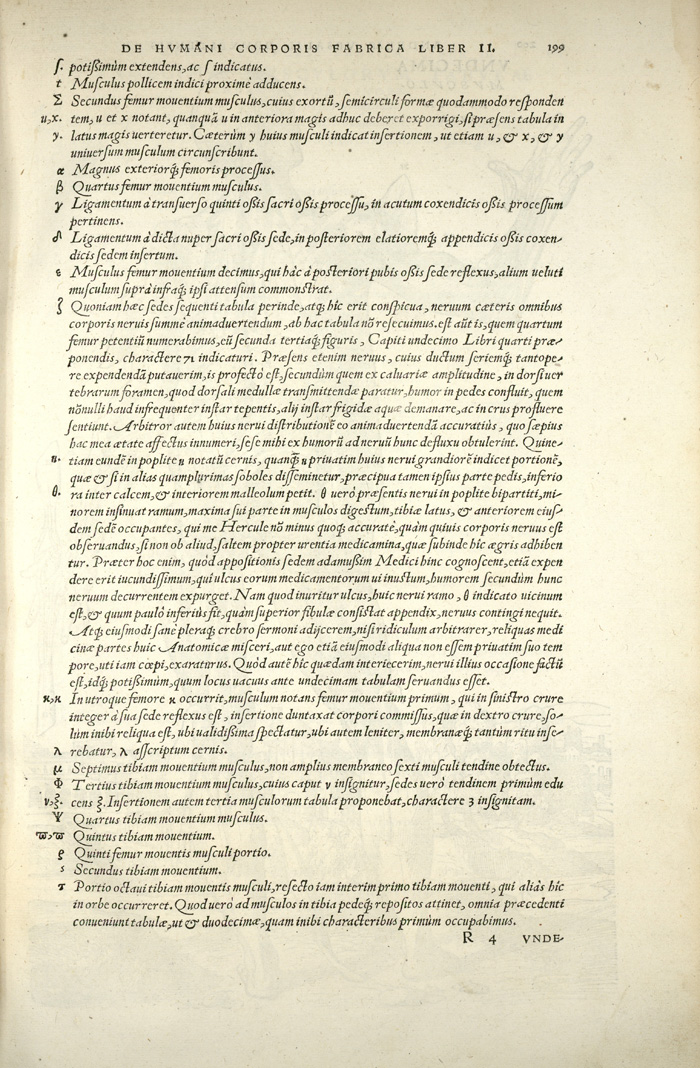 DE HVMANI CORPORIS FABRICA LIBER II. 199
ſ. potißimùm extendens, ac ſ indicatus.
t Musculus pollicem indici proximè adducens.
Σ Secundus femur mouentium musculus, cuius exortũ, semicirculi formæ quodammodo responden
u,x. tem, u et x notant, quanquã u in anteriora magis adhuc deberet exporrigi, si præsens tabula in
y. latus magis uerteretur. Cæterùm y huius musculi indicat insertionem, ut etiam u, & x, & y
uniuersum musculum circunscribunt.
α Magnus exteriorq́; femoris processus.
β Quartus femur mouentium musculus.
γ Ligamentum à transuerso quinti oßis sacri oßis processu, in acutum coxendicis oßis processum
pertinens.
δ Ligamentum à dicta nuper sacri oßis sede, in posteriorem elatioremq́; appendicis oßis coxen-
dicis sedem insertum.
ε Musculus femur mouentium decimus, qui hàc à posteriori pubis oßis sede reflexus, alium ueluti
musculum suprà infraq́; ipsi attensum commonstrat.
ζ Quoniam hæc sedes sequenti tabula perinde, atq; hìc erit conspicua, neruum cæteris omnibus
corporis neruis summè animaduertendum, ab hac tabula nõ resecuimus. est aũt is, quem quartum
femur petentiũ numerabimus, eũ secunda tertiaq́; figuris, Capiti undecimo Libri quarti præ-
ponendis, charactere ϡ indicaturi. Præsens etenim neruus, cuius ductum seriemq́; tantope-
re expendendã putauerim, is profectò est, secundùm quem ex caluariæ amplitudine, in dorsi uer
tebrarum foramen, quod dorsali medullæ transmittendæ paratur, humor in pedes confluit, quem
nõnulli haud infrequenter instar tepentis, alij instar frigidæ aquæ demanare, ac in crus profluere
sentiunt. Arbitror autem huius nerui distributionẽ eo animaduertendã accuratiùs, quo sæpius
hac mea ætate affectus innumeri, sese mihi ex humorũ ad neruũ hunc defluxu obtulerint. Quine-
η. tiam eundẽ in poplite η notatũ cernis, quanq̃; η priuatim huius nerui grandiorẽ indicet portionẽ,
quæ & si in alias quamplurimas soboles dissem̃inetur, præcipua tamen ipsius parte pedis, inferio
θ. ra inter calcem, & interiorem malleolum petit. θ uerò præsentis nerui in poplite bipartiti, mi-
norem insinuat ramum, maxima sui parte in musculos digestum, tibiæ latus, & anteriorem eius-
dem sedẽ occupantes, qui me Hercule nõ minus quoq; accuratè, quàm quiuis corporis neruus est
obseruandus, si non ob aliud, saltem propter urentia medicamina, quæ subinde hìc ægris adhiben
tur. Præter hoc enim, quòd appositionis sedem adamußim Medici hinc cognoscent, etiã expen
dere erit iucundissimum, qui ulcus eorum medicamentorum ui inustum, humorem secundùm hunc
neruum decurrentem expurget. Nam quod inuritur ulcus, huic nerui ramo, θ indicato uicinum
est, & quum paulò inferiùs fit, quàm superior fibulæ consistat appendix, neruus contingi nequit.
Atq; eiusmodi sanè pleraq; crebro sermoni adijcerem, nisi ridiculum arbitrarer, reliquas medi
cinæ partes huic Anatomicæ misceri, aut ego etiã eiusmodi aliqua non essem priuatim suo tem
pore, uti iam cœpi, exaraturus. Quòd autẽ hìc quædam interiecerim, nerui illius occasione factũ
est, idq́; potißimùm, quum locus uacuus ante undecimam tabulam seruandus esset.
κ,κ In utroque femore κ occurrit, musculum notans femur mouentium primum, qui in sinistro crure
integer à sua sede reflexus est, insertione duntaxat corpori commissus, quæ in dextro crure, so-
lùm inibi reliqua est, ubi ualidißima spectatur, ubi autem leniter, membranæq́; tantùm ritu inse-
λ rebatur, λ asscriptum cernis.
μ Septimus tibiam mouentium musculus, non amplius membraneo sexti musculi tendine obtectus.
Φ Tertius tibiam mouentium musculus, cuius caput ν insignitur, sedes uerò tendinem primùm edu
ν,ξ. cens ξ. Insertionem autem tertia musculorum tabula proponebat, charactere 3 insignitam.
Ψ Quartus tibiam mouentium musculus.
ϖ,ϖ Quintus tibiam mouentium.
ϱ Quinti femur mouentis musculi portio.
s Secundus tibiam mouentium.
τ Portio octaui tibiam mouentis musculi, resecto iam interim primo tibiam mouenti, qui aliàs hìc
in orbe occurreret. Quod uerò ad musculos in tibia pedeq́; repositos attinet, omnia præcedenti
conueniunt tabulæ, ut & duodecimæ, quam inibi characteribus primùm occupabimus.
R 4 VNDE-